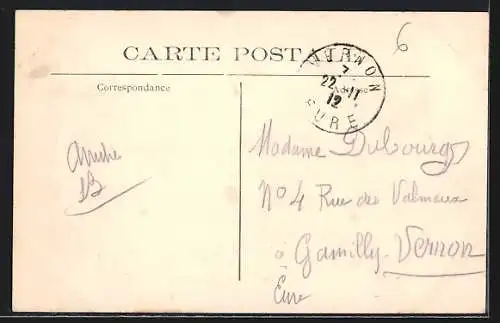 6
CARTE POSTALE
VERNON
7
22-11
12
EURE
Correspondance
Adresse
Madame Dubourg
N° 4 Rue des Valmeux
à Gamilly-Vernon
Eure